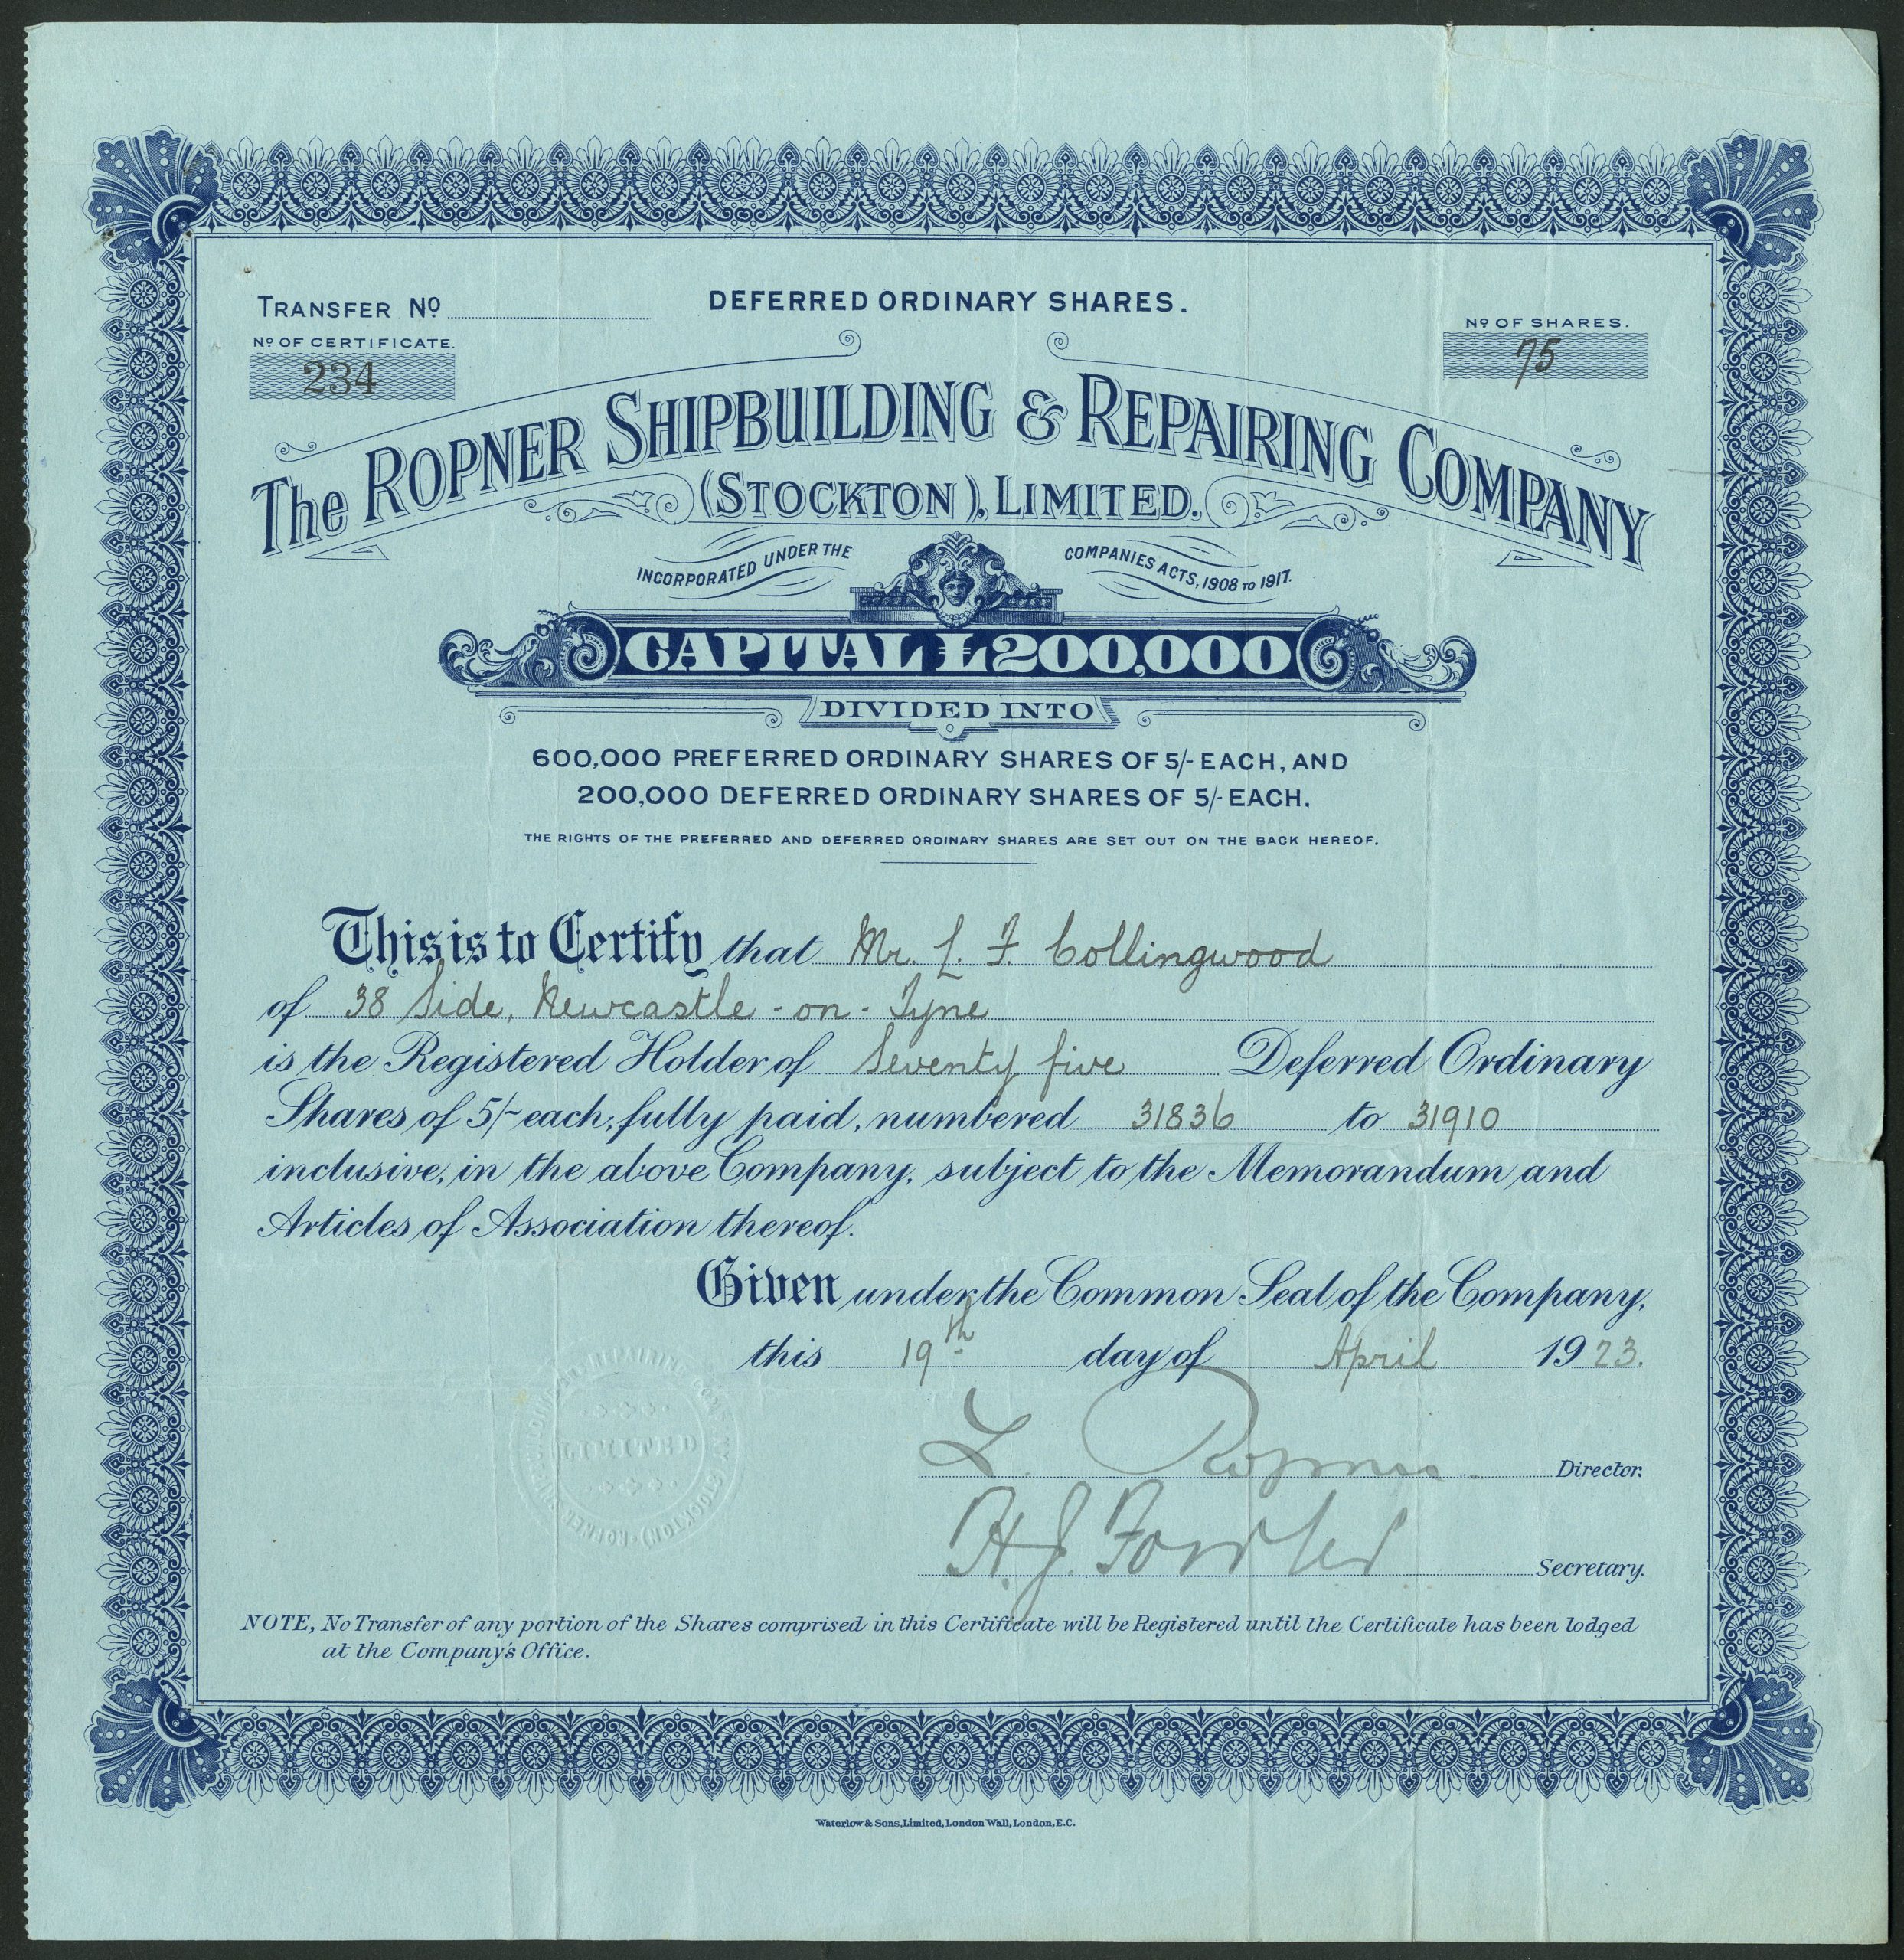 TRANSFER No
DEFERRED ORDINARY SHARES.
No OF SHARES.
75
No OF CERTIFICATE.
234
The ROPNER SHIPBUILDING & REPAIRING COMPANY
(STOCKTON), LIMITED.
INCORPORATED UNDER THE COMPANIES ACTS, 1908 TO 1917.
CAPITAL £200,000
DIVIDED INTO
600,000 PREFERRED ORDINARY SHARES OF 5/- EACH, AND
200,000 DEFERRED ORDINARY SHARES OF 5/- EACH.
THE RIGHTS OF THE PREFERRED AND DEFERRED ORDINARY SHARES ARE SET OUT ON THE BACK HEREOF.
This is to Certify that Mr. L. F. Collingwood
of 38 Side, Newcastle-on-Tyne
is the Registered Holder of Seventy five Deferred Ordinary
Shares of 5/- each, fully paid, numbered 31836 to 31910
inclusive, in the above Company, subject to the Memorandum and
Articles of Association thereof.
Given under the Common Seal of the Company,
this 19th day of April 1923.
L. Ropner Director.
H. J. Fowler Secretary.
LIMITED
NOTE, No Transfer of any portion of the Shares comprised in this Certificate will be Registered until the Certificate has been lodged
at the Company's Office.
Waterlow & Sons, Limited, London Wall, London, E.C.